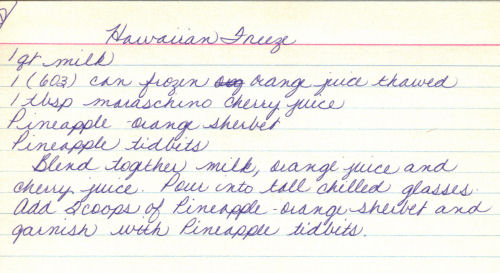 Hawaiian Freeze
1 qt milk
1 (6oz) can frozen orange juice thawed
1 tbsp maraschino cherry juice
Pineapple-orange sherbet
Pineapple tidbits
Blend together milk, orange juice and
cherry juice. Pour into tall chilled glasses.
Add scoops of Pineapple-orange sherbet and
garnish with Pineapple tidbits.